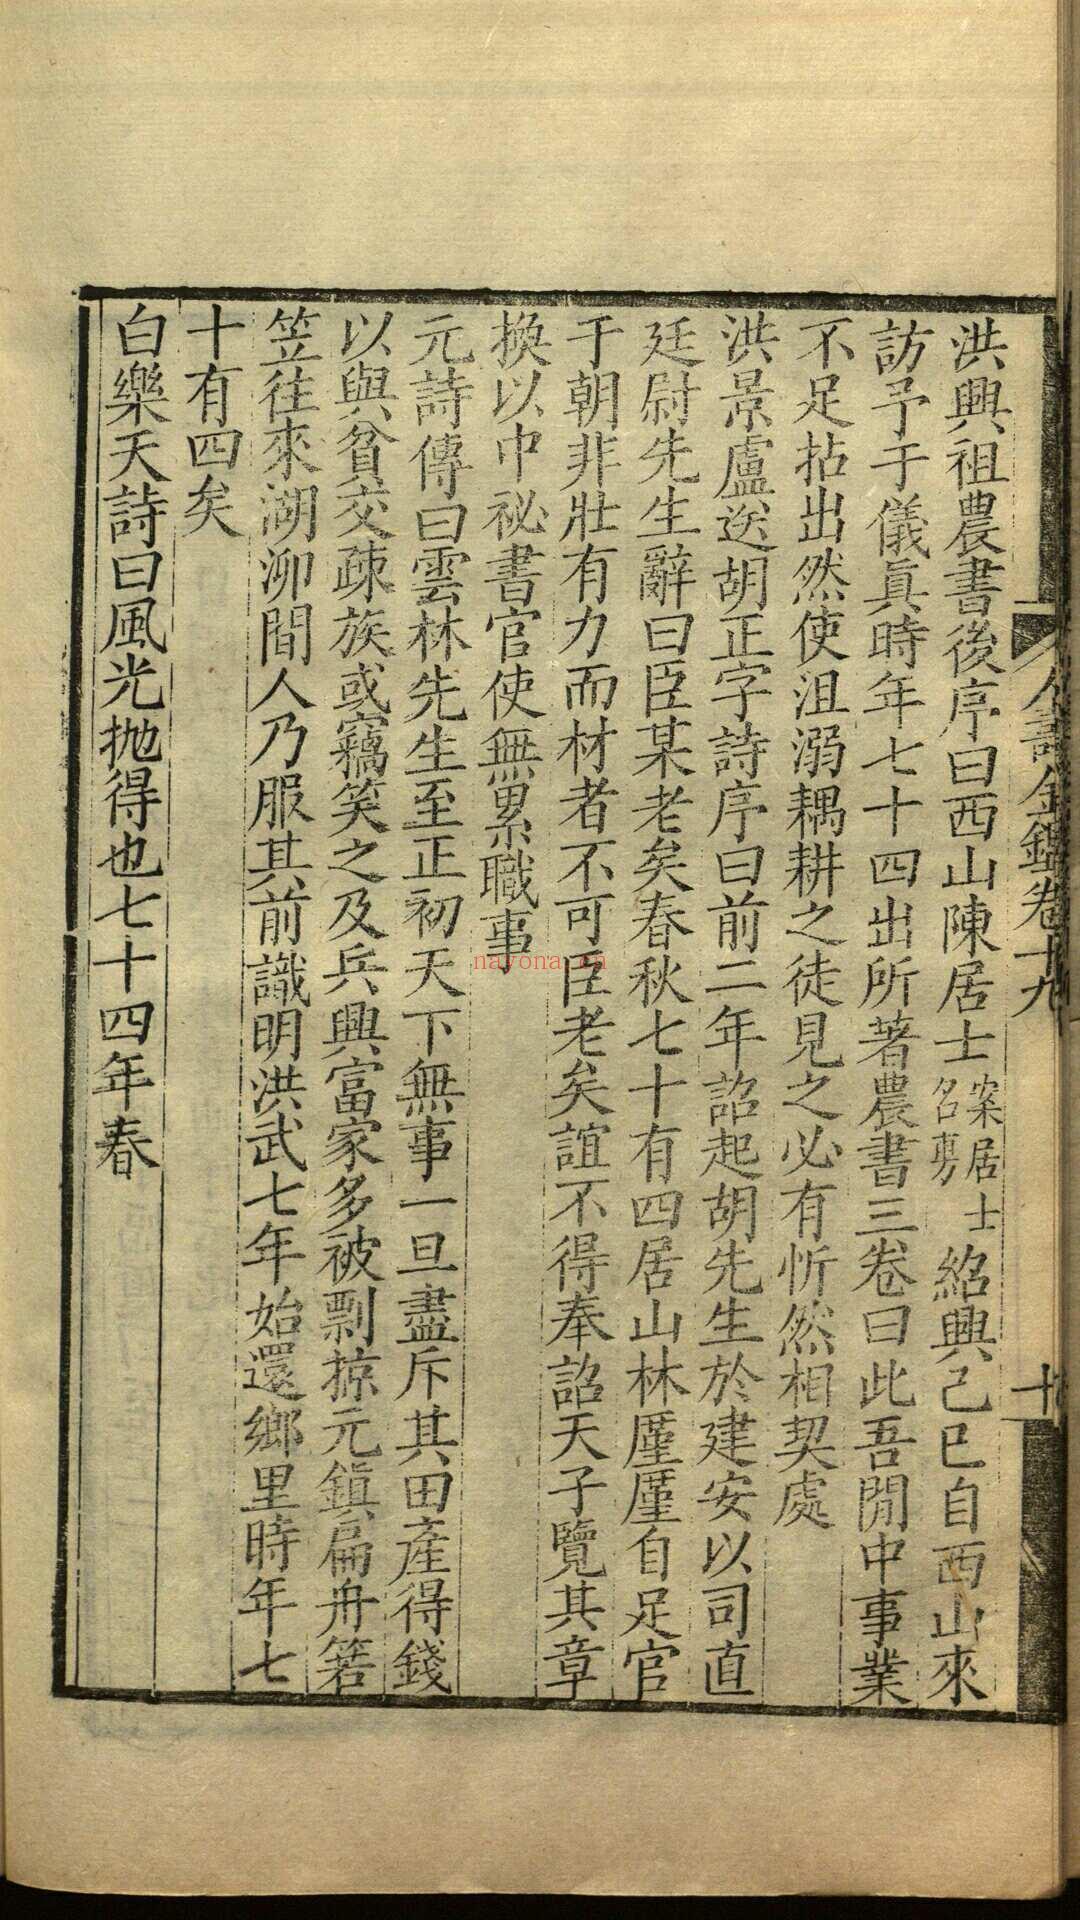 人壽金鑑卷十九
十
洪興祖農書後序曰西山陳居士案居士名旉紹興己巳自西山來
訪予于儀眞時年七十四出所著農書三卷曰此吾閒中事業
不足拈出然使沮溺耦耕之徒見之必有忻然相契處
洪景盧送胡正字詩序曰前二年詔起胡先生於建安以司直
廷尉先生辭曰臣某老矣春秋七十有四居山林廑廑自足官
于朝非壯有力而材者不可臣老矣誼不得奉詔天子覽其章
換以中祕書官使無累職事
元詩傳曰雲林先生至正初天下無事一旦盡斥其田產得錢
以與貧交疎族或竊笑之及兵興富家多被剽掠元鎭扁舟箬
笠往來湖泖間人乃服其前識明洪武七年始還鄉里時年七
十有四矣
白樂天詩曰風光抛得也七十四年春
nayona.cn